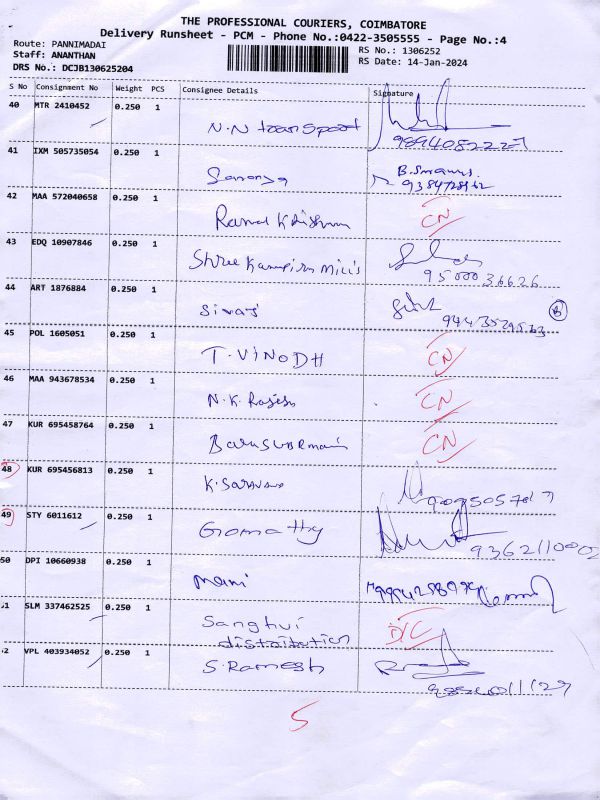 THE PROFESSIONAL COURIERS, COIMBATORE
Delivery Runsheet - PCM - Phone No.:0422-3505555 - Page No.:4
Route: PANNIMADAI
RS No.: 1306252
Staff: ANANTHAN
RS Date: 14-Jan-2024
DRS No.: DCJB130625204
S No Consignment No Weight PCS Consignee Details Signature
40 MTR 2410452 0.250 1 N.N transport
9894082227
41 IXM 505735054 0.250 1 Saranya
42 MAA 572040658 0.250 1 CN
43 EDQ 10907846 0.250 1 Shree Mills
9500036626
44 ART 1876884 0.250 1 Sivaj B
45 POL 1605051 0.250 1 T.VINODH CN
46 MAA 943678534 0.250 1 N.K. Rajesh CN
47 KUR 695458764 0.250 1 CN
48 KUR 695456813 0.250 1 K.
49 STY 6011612 0.250 1 Gomathy
9362110002
50 DPI 10660938 0.250 1 mani
51 SLM 337462525 0.250 1 Sanghvi D/C
distribution
52 VPL 403934052 0.250 1 S.Ramesh
5